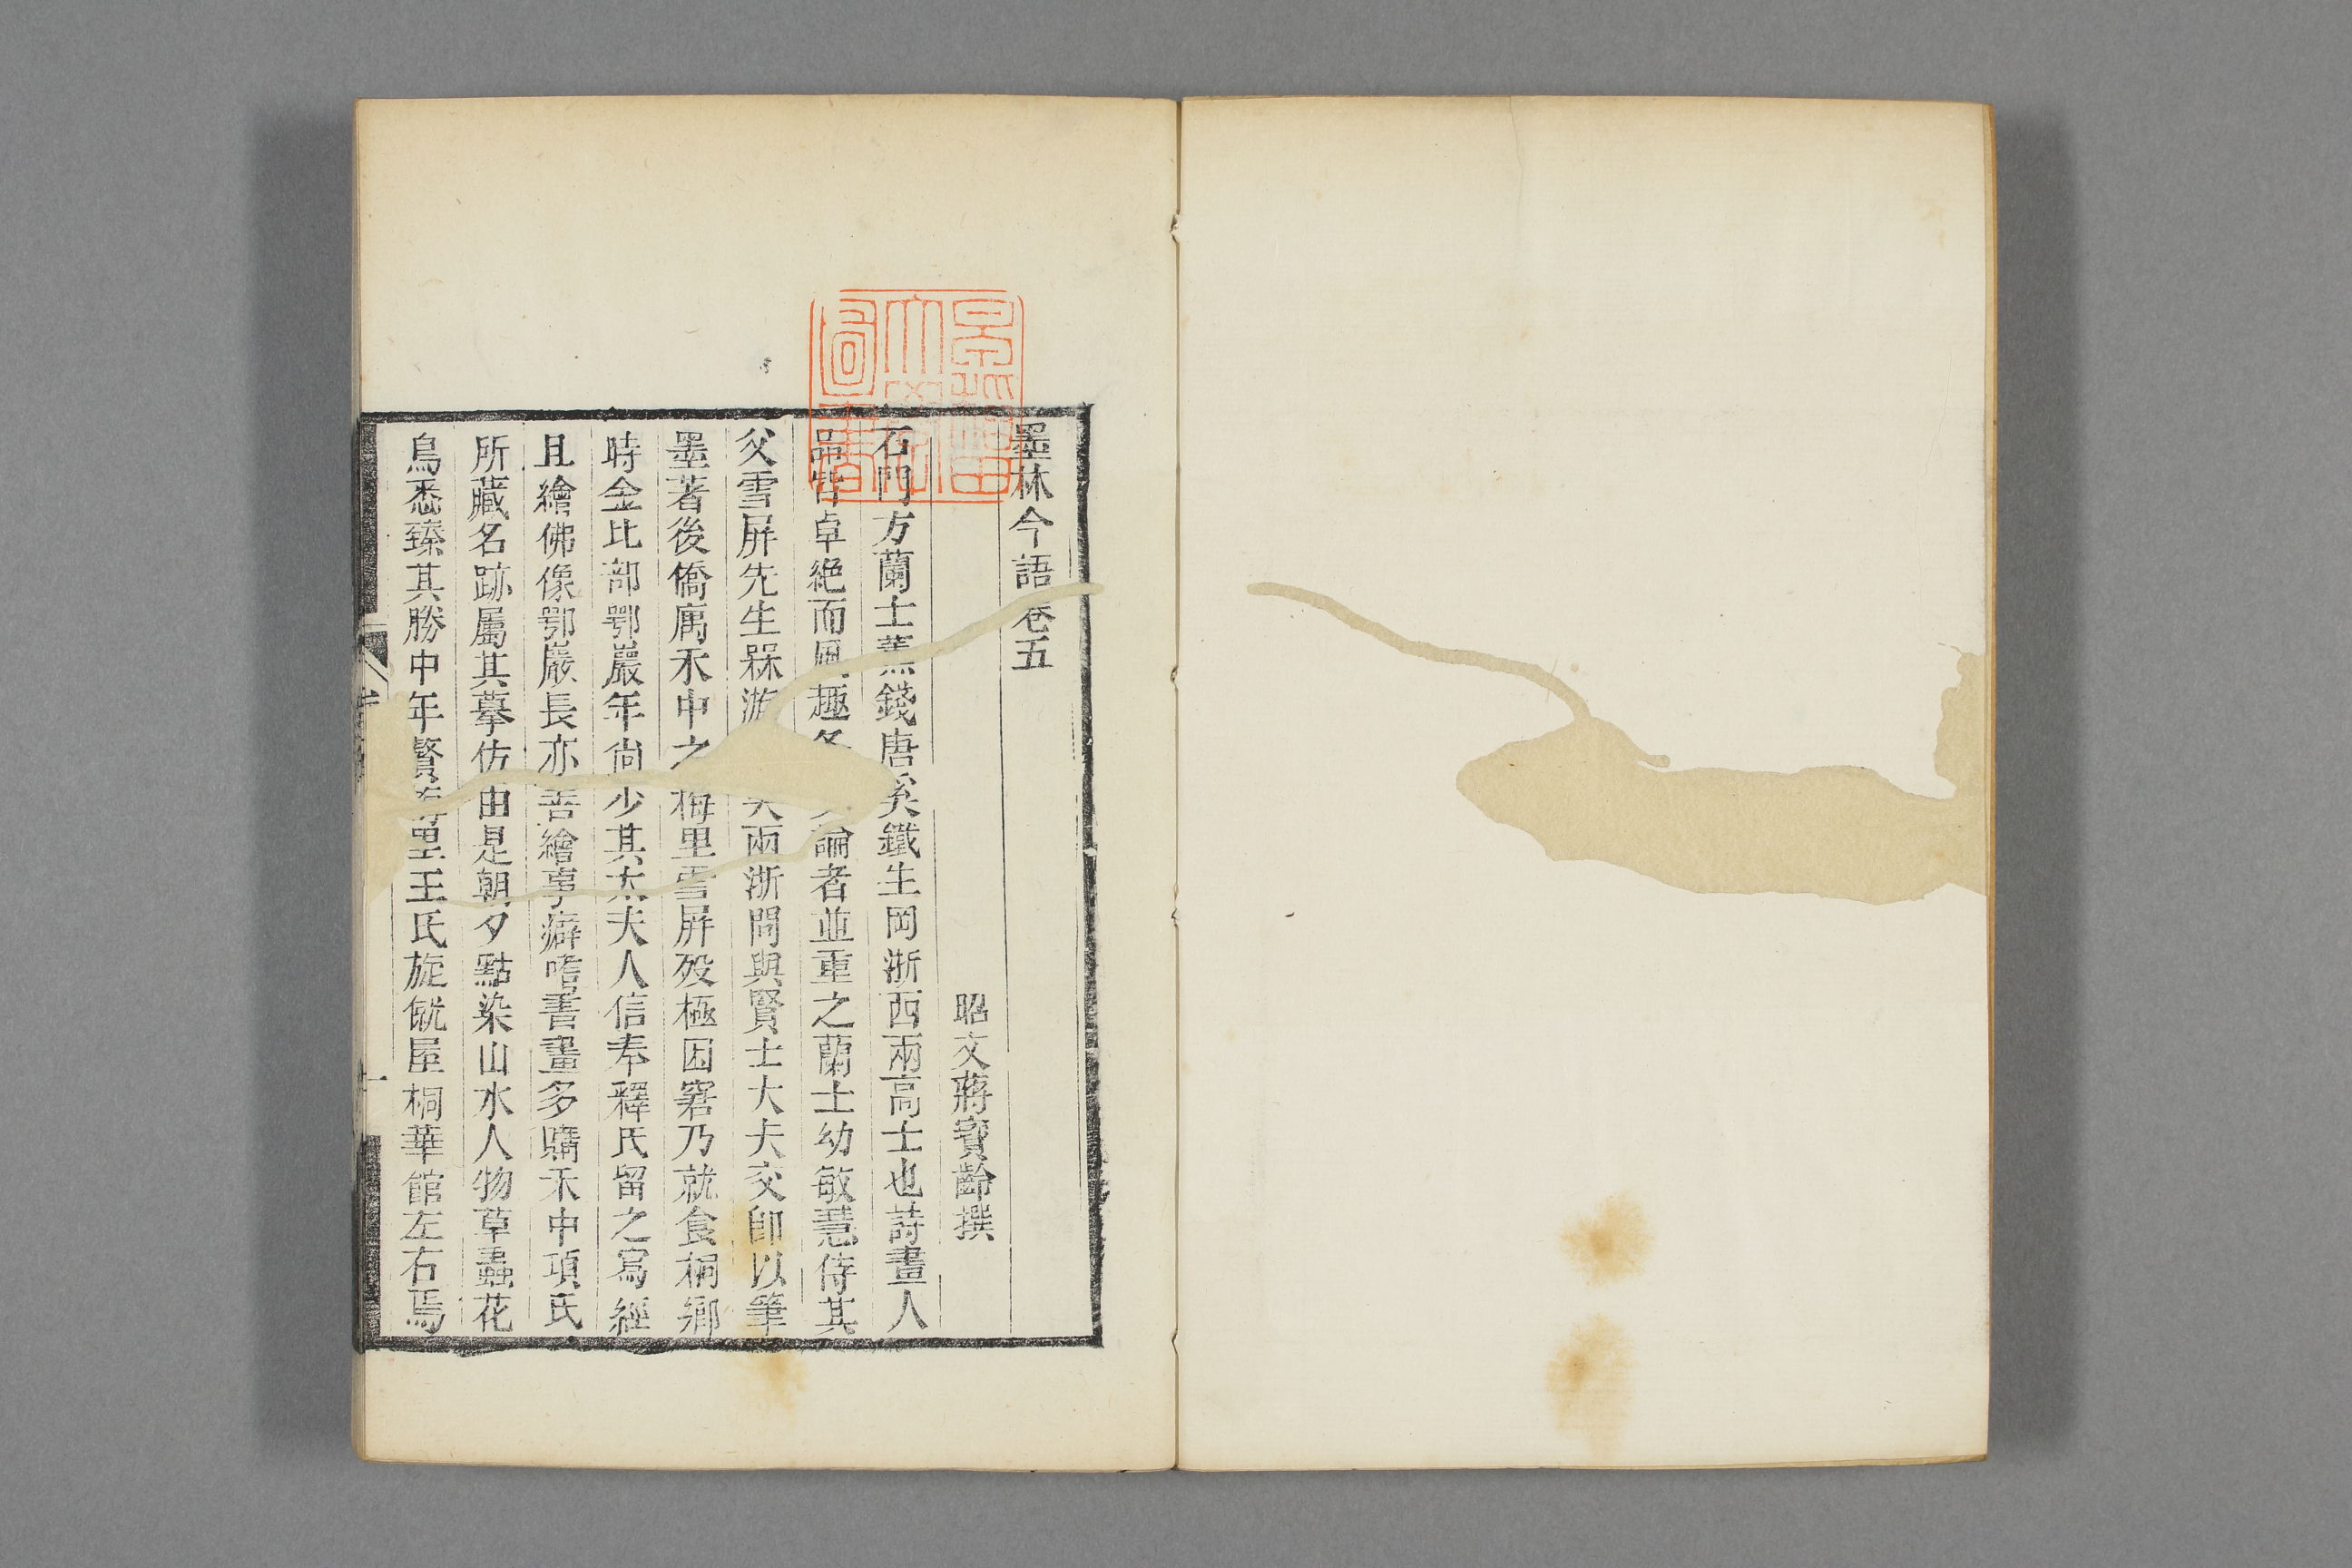 墨林今語卷五
昭文蔣寶齡撰
石門方蘭士薰錢唐奚鐵生岡浙西兩高士也詩畫人
品皆卓絕而風趣各論者並重之蘭士幼敏慧侍其
父雪屏先生槑游兩浙間與賢士大夫交卽以筆
墨著後僑寓禾中之梅里雪屏歿極困窘乃就食桐鄉
時金比部鄂巖年尙少其太夫人信奉釋氏留之寫經
且繪佛像鄂巖長亦善繪事癖嗜書畫多購禾中項氏
所藏名跡屬其摹仿由是朝夕點染山水人物草蟲花
鳥悉臻其勝中年贅梅里王氏旋僦屋桐華館左右焉
一